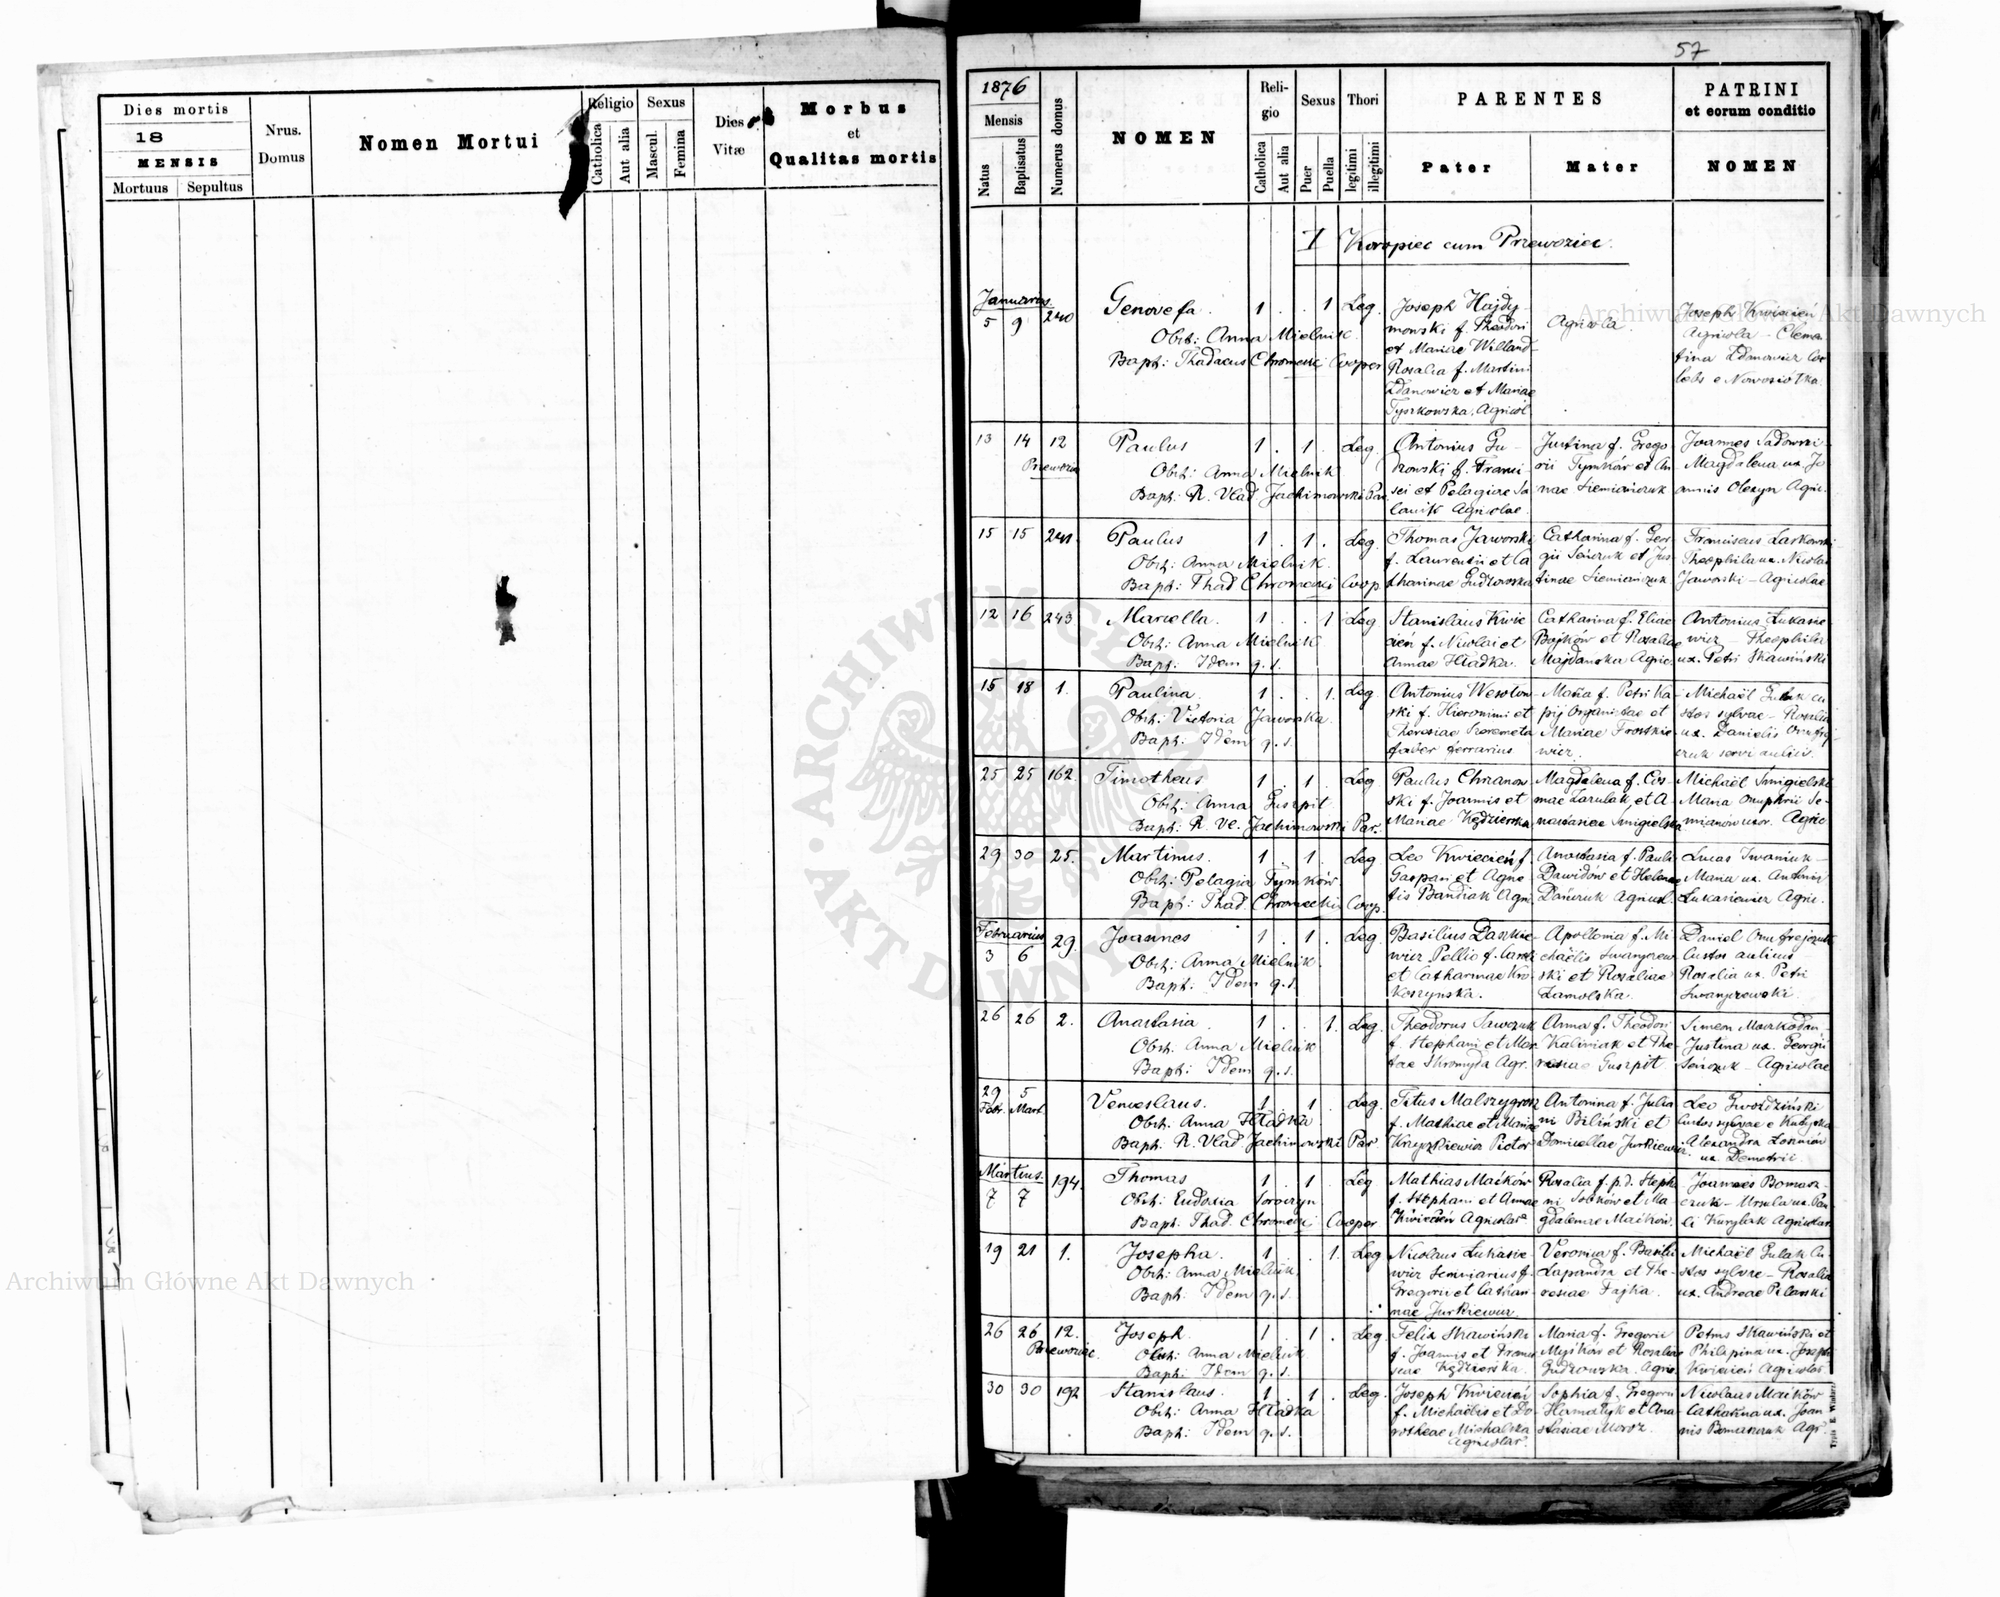 Dies mortis
18
MENSIS
Mortuus
Sepultus
Nrus.
Domus
Nomen Mortui
Religio
Catholica
Aut alia
Sexus
Mascul.
Femina
Dies
Vitæ
Morbus
et
Qualitas mortis
57
1876
Mensis
Natus
Baptisatus
Numerus domus
NOMEN
Reli-
gio
Catholica
Aut alia
Sexus
Puer
Puella
Thori
legitimi
illegitimi
PARENTES
Pater
Mater
PATRINI
et eorum conditio
NOMEN
I Koropiec cum Przewoziec.
Januarius.
5 9 240
Genovefa. 1 . . 1 Leg.
Obst: Anna Mielnik.
Bapt: Thadaeus Chromecki Cooper.
Joseph Hajdy-
mowski f. Theodori
et Mariae Willand-
Rosalia f. Martini
Zdanowicz et Mariae
Tyszkowska, Agricol
Agricola.
Joseph Kwiecień
Agricola – Clemen
tina Zdanowicz Coe
lebs e Nowosiółka.
13 14 12
Przewoziec
Paulus 1 . 1 . Leg.
Obst: Anna Mielnik
Bapt: R. Vlad Jachimowski Par.
Antonius Gu-
drowski f. Franci
sci et Pelagiae Sa
lanik Agricolae.
Justina f. Grego
rii Tymków et An
nae Siemiańczuk
Joannes Sadowski
Magdalena ux. Jo
annis Olexyn Agric.
15 15 241.
Paulus 1 . 1 . Leg.
Obst: Anna Mielnik.
Bapt: Thad Chromecki Coop
Thomas Jaworski
f. Laurentii et Ca
tharinae Gudrowska
Catharina f. Geor
gii Seńczuk et Jus-
tinae Siemiańczuk
Franciscus Laskowski
Theophila ux. Nicolai
Jaworski – Agricolae
12 16 243
Marcella. 1 . . 1 Leg
Obst: Anna Mielnik
Bapt: Idem q.s.
Stanislaus Kwie
cień f. Nicolai et
Annae Hładka.
Catharina f. Eliae
Bojków et Rosaliae
Majdańska Agric.
Antonius Łukasie
wicz – Theophila
ux. Petri Skawiński
15 18 1.
Paulina. 1 . . 1. Leg.
Obst: Victoria Jaworska.
Bapt: Idem q.s.
Antonius
ski f. Hieronimi et
Theresiae
faber ferrarius
Maria f. Petri Ka-
pij Organistae et
Mariae
wicz.
Michaël Gulak cu
stos sylvae – Rosalia
ux. Danielis Onufrej
czuk servi aulici.
25 25 162
Timotheus 1 . 1 . Leg
Obst: Anna Guszpit
Bapt: R. Vl. Jachimowski Par.
Paulus Chrzanow
ski f. Joannis et
Mariae Kędzierska
Magdalena f. Cos-
mae Zarulak et A-
nastasiae Smigielska
Michaël Smigielski
Maria Onuphrii Se-
mianów uxor. Agric
29 30 25.
Martinus. 1 . 1 . Leg
Obst: Pelagia Tymków.
Bapt: Thad. Chromecki Coop.
Leo Kwiecień f.
Gaspari et Agne
tis Bandiak Agri
Anastasia f. Pauli
Dawidów et Helenae
Dańczuk Agricol.
Lucas Iwaniuk –
Maria ux. Antonii
Łukasiewicz Agric.
Februarius
3 6 29.
Joannes 1 . 1 . Leg.
Obst: Anna Mielnik.
Bapt: Idem q.s.
Basilius Daszkie-
wicz Pellio f.
et Catharinae Kro
koszyńska.
Apollonia f. Mi
chaëlis Swanjzew
ski et Rosaliae
Zamolska.
Daniel Onufrejczuk
Custos aulicus –
Rosalia ux. Petri
Swanjzewski
26 26 2.
Anastasia. 1 . . 1. Leg.
Obst: Anna Mielnik
Bapt: Idem q.s.
Theodorus Sawczuk
f. Stephani et Mar
tae Skromyda Agr.
Anna f. Theodori
Kaliniak et The
resiae Guszpit
Simeon
Justina ux. Georgii
Seńczuk – Agricolae
29 5
Febr. Mart.
Venceslaus. 1 . 1 . Leg.
Obst: Anna Hładka.
Bapt: R. Vlad Jachimowski Par.
Titus
f. Mathiae et Mariae
Knyszkiewicz Pictor
Antonina f. Julia
ni Biliński et
Domicellae Jurkiewicz.
Leo Gwoździński
Custos sylvae e
Alexandra
ux. Demetrii
Martius.
7 7 194.
Thomas 1 . 1 Leg
Obst: Eudoxia
Bapt: Thad. Chromecki Cooper
Mathias Maćków
f. Stephani et Annae
Kwiecień Agricolae
Rosalia f. p.d. Stepha
ni Sobków et Ma
gdalenae Maćków.
Joannes Bomasz-
czuk – Ursula ux. Pau
li Kurylak Agricolae
19 21 1.
Josepha. 1 . . 1. Leg
Obst: Anna Mielnik.
Bapt: Idem q.s.
Nicolaus Łukasie-
wicz f.
Gregorii et Cathari-
nae Jurkiewicz
Veronica f. Basilii
Lapandra et The-
resiae Fajka.
Michaël Gulak Cu-
stos sylvae – Rosalia
ux. Andreae Pilarski
26 26 12.
Przewoziec.
Joseph. 1 . 1 . Leg.
Obst: Anna Mielnik
Bapt: Idem q.s.
Felix Skawiński
f. Joannis et Franci
scae Kędzierska.
Maria f. Gregorii
Myśków et Rosaliae
Gudrowska. Agric
Petrus Skawiński et
Philippina ux. Josephi
Kwiecień Agricolae
30 30 192
Stanislaus. 1 . 1 . Leg.
Obst: Anna Hładka
Bapt: Idem q.s.
Joseph Kwiecień
f. Michaëlis et Do-
rotheae Michalska
Agricolae.
Sophia f. Gregorii
Hamatyk et Ana-
stasiae Moroz.
Nicolaus Maćków
Catharina ux. Joan
nis Bomaszczuk Agr.
Archiwum Główne Akt Dawnych
Archiwum Główne Akt Dawnych
ARCHIWUM GŁÓWNE
AKT DAWNYCH